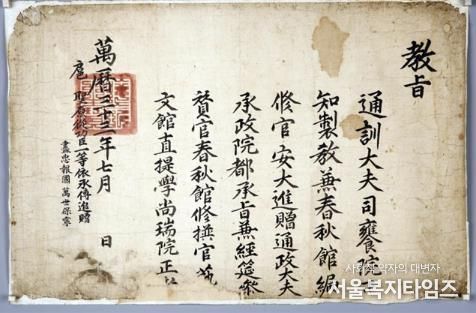 敎旨
通訓大夫司饔院
知製敎兼春秋館編
修官安大進贈通政大夫
承政院都承旨兼經筵參
賛官春秋館修撰官藝
文館直提學尚瑞院正者
萬曆三十三年七月 日
扈聖原從功臣一等依承傳追贈
盡忠報國萬世保
사회적 약자의 대변자
서울복지타임즈